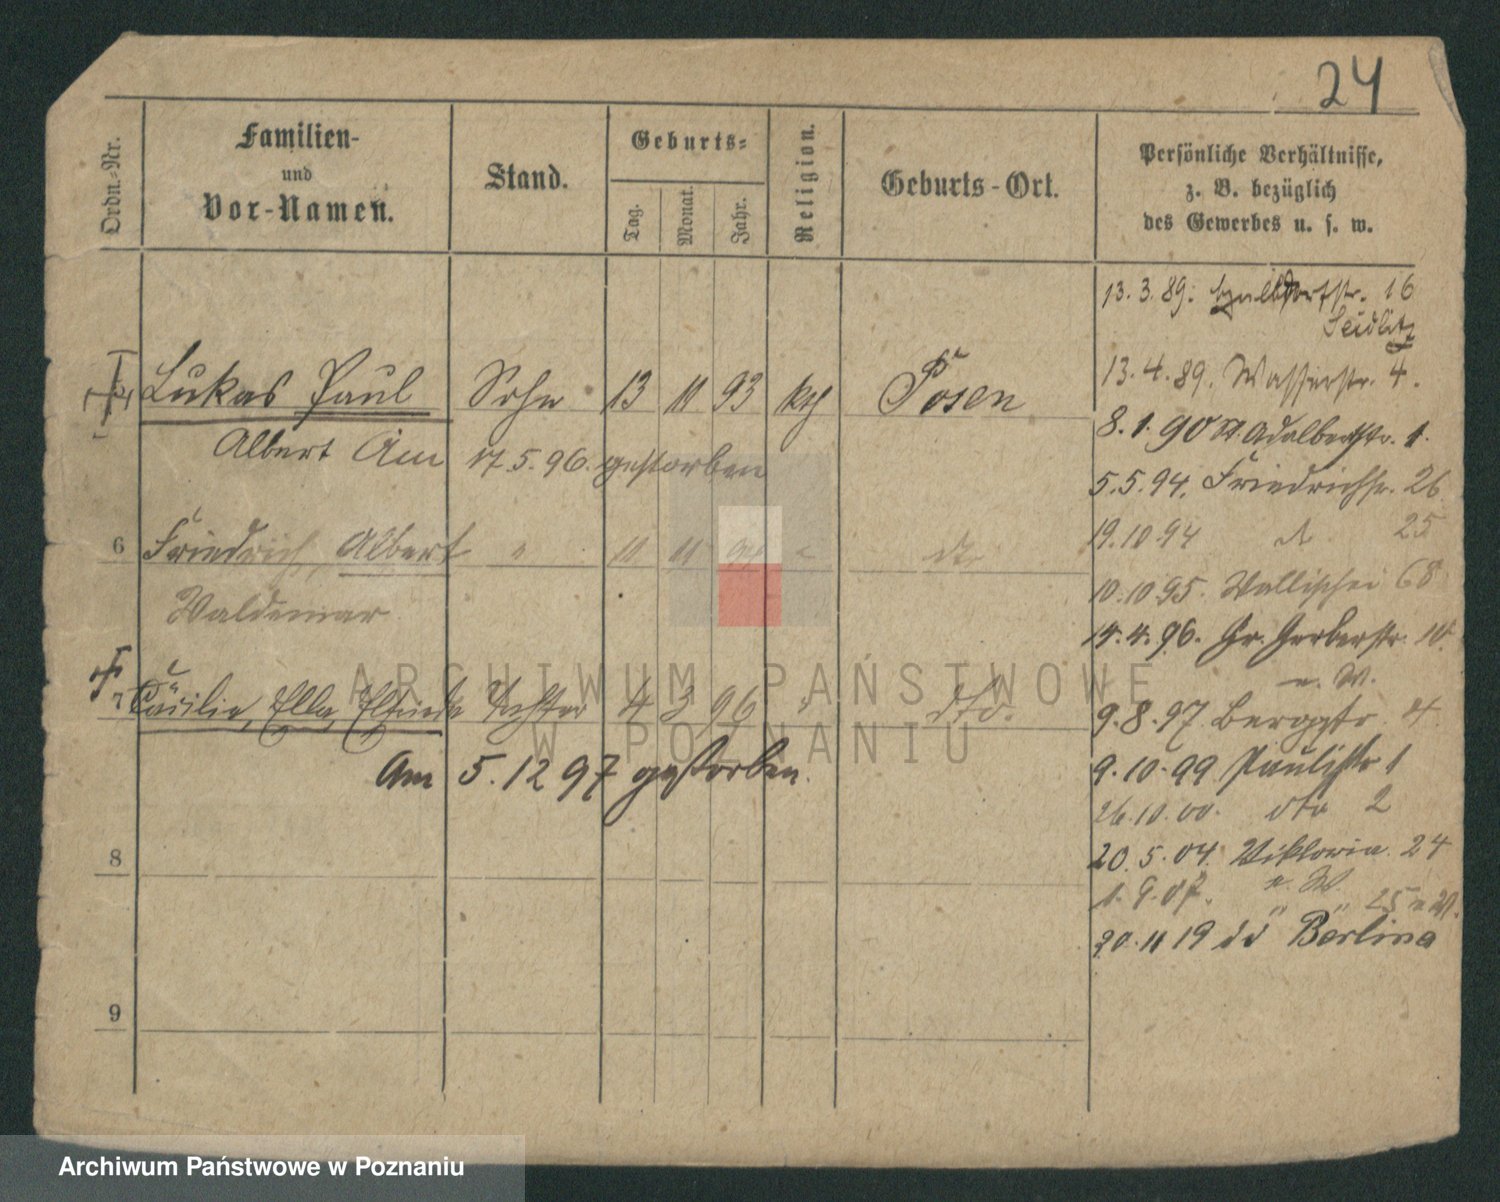 24
Ordn.-Nr.
Familien-
und
Vor-Namen.
Stand.
Geburts-
Tag.
Monat.
Jahr.
Religion.
Geburts-Ort.
Persönliche Verhältnisse,
z. B. bezüglich
des Gewerbes u. s. w.
Lukas Paul Sohn 13 11 93 kth Posen
Albert Am 17.5.96. gestorben
6 Friedrich, Albert " 11 11
Waldemar
Cäcilie, Ella, Tochter 4 3 96 " dto.
Am 5.12 97 gestorben.
8
9
13.3.89. Halbdorfstr. 16
Seidlitz
13.4.89. Wasserstr. 4.
8.1.90 St. Adalbertstr. 1.
5.5.94. Friedrichstr. 26
19.10 94 25
10.10 95. Wallischei 68
14.4.96. Gr. Gerberstr. 10.
n. W.
9.8.97. Bergstr. 4.
9.10.99 Paulistr 1
26.10.00. dto 2
20.5.04. Viktoria. 24
1.9.07. n. W.
" " 25 n W.
20.11 19 Berlina
ARCHIWUM PAŃSTWOWE
W POZNANIU
Archiwum Państwowe w Poznaniu